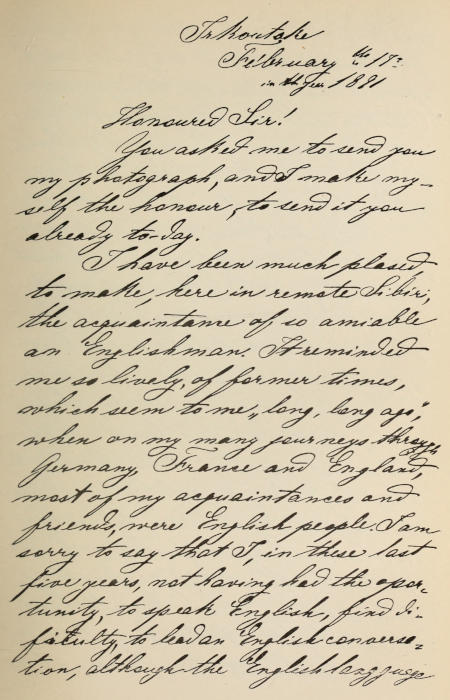 Irkoutske
February the 17:
in the year 1891
Honoured Sir!
You asked me to send you
my photograph, and I make my-
self the honour, to send it you
already to-day.
I have been much plased,
to make, here in remote Sibiri,
the acquaintance of so amiable
an Englishman. It reminded
me so lively, of former times,
which seem to me „long, long ago",
when on my many journeys through
Germany, France and England,
most of my acquaintances and
friends, were English people. I am
sorry to say that I, in these last
five years, not having had the opor-
tunity, to speak English, find di-
faculty, to lead an English conversa-
tion, although the English langguage